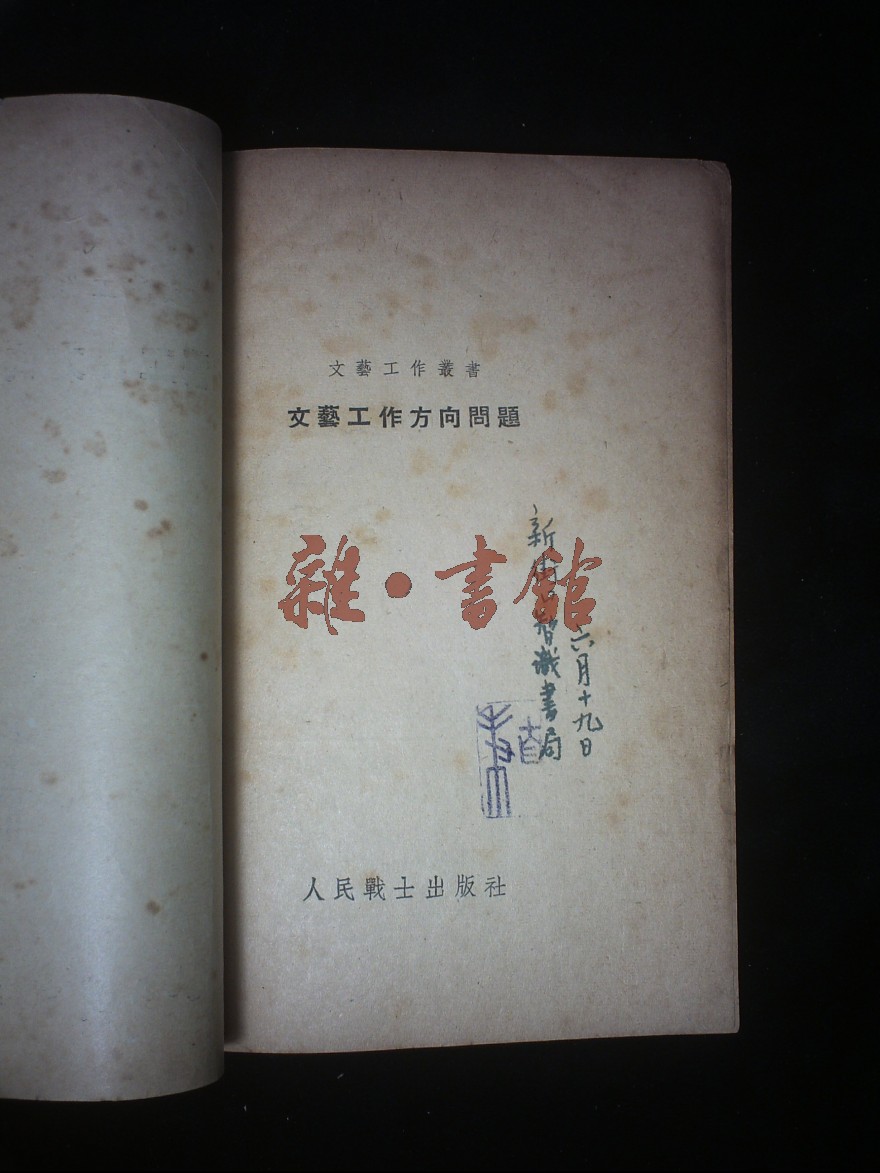 文藝工作叢書
文藝工作方向問題
雜·書館
六月十九日
新街口智識書局
人民戰士出版社